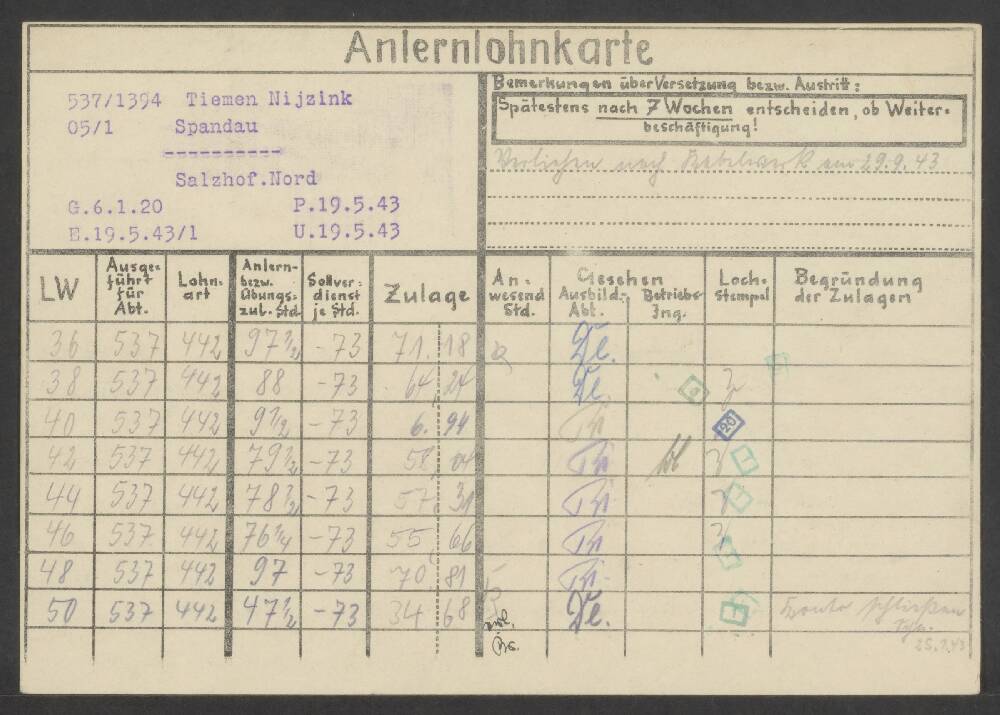 Anlernlohnkarte
537/1394 Tiemen Nijzink
05/1 Spandau
-----------
Salzhof.Nord
G.6.1.20 P.19.5.43
E.19.5.43/1 U.19.5.43
Bemerkungen über Versetzung bezw. Austritt:
Spätestens nach 7 Wochen entscheiden, ob Weiter-
beschäftigung!
Verliehen nach Kabelwerk am 29.9.43
LW Ausge-führt für Abt. Lohn-art Anlern- bezw. Übungs-zul. Std. Sollver-dienst je Std. Zulage An-wesend Std. Gesehen Ausbild.-Abt. Betriebs-Ing. Loch-stempel Begründung der Zulagen
36 537 442 97 1/2 -73 71.18
38 537 442 88 -73 64,24
40 537 442 9 1/2 -73 6.94 20
42 537 442 79 1/2 -73 58,04
44 537 442 78 1/2 -73 57,31
46 537 442 76 1/4 -73 55,66
48 537 442 97 -73 70,81
50 537 442 47 1/2 -73 34,68 Konto schließen
25.9.43